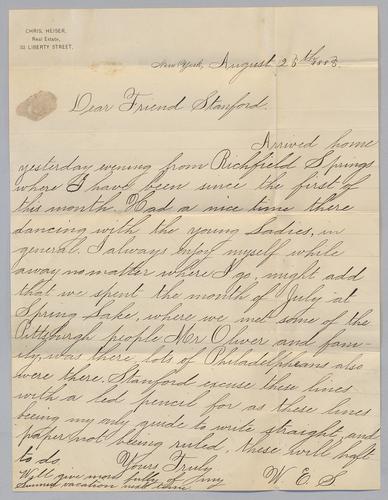 CHRIS. HEISER,
Real Estate,
LIBERTY STREET,
New York, August 25th
Dear Friend Stanford.
Arrived home
yesterday evening from Richfield Springs
where I have been since the first of
this month. Had a nice time there
dancing with the young Ladies, in
general. I always enjoy myself while
away no matter where I go, might add
that we spent the month of July at
Spring Lake, where we met some of the
Pittsburgh people Mr Oliver and fam-
ily, was there, lots of Philadelpheans also
were there. Stanford excuse these lines
with a led pencil for as these lines
being my only guide to write straight, and
paper not being ruled, these will haft
to do. Yours Truly
Will give more fully of my W. E. S
Summer vacation next time